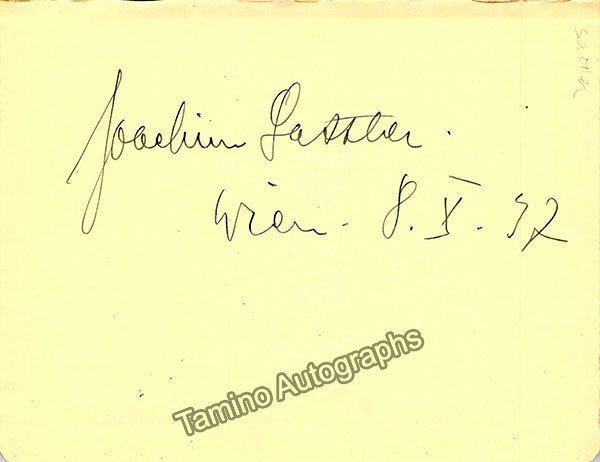 Sattler
Joachim Sattler.
Wien. 8. X. 37
Tamino Autographs